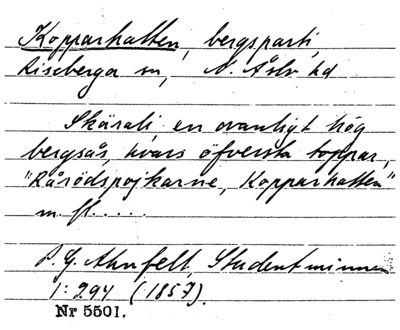 Kopparhatten, bergsparti,
Riseberga sn, N. Åsbo hd
Skärali, en ovanligt hög
bergsås, hvars öfversta toppar,
"Rårödspojkarne, Kopparhatten"
m. fl. . . . .
P. G. Ahnfelt, Studentminnen
1: 294 (1857).
Nr 5501.